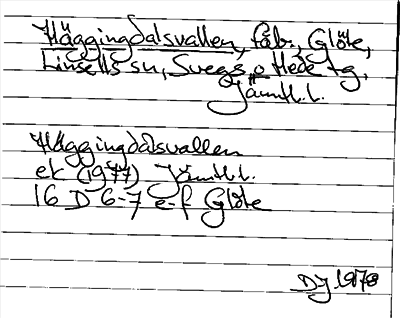 Häggingdalsvallen, fäb., Glöte,
Linsells sn, Svegs o Hede tg,
Jämtl.l.
Häggingdalsvallen
ek (1977) Jämtl.l.
16 D 6-7 e-f Glöte
DJ 1978